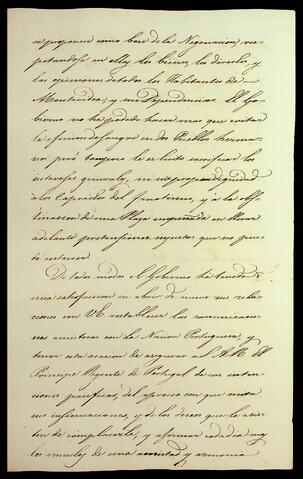 se proponen como base de la Negociacion, res-
petandose en ellas los bienes, los derechos, y
las opiniones de todos los Habitantes de
Montevideo, y sus Dependencias. El Go-
bierno no ha podido hacer mas que evitar
la efusion de sangre en dos Pueblos herma-
nos: pero tampoco le es licito sacrificar los
intereses generales, ni su propia dignidad
à los caprichos del fanatismo, y à la obs-
tinacion de una Plaza empeñada en llevar
adelante pretensiones injustas que no pue-
de sostener.
De todos modos el Gobierno ha tenido
una satisfaccion en abrir de nuevo sus rela-
ciones con VE. restablecer las comunicacio-
nes amistosas con la Nacion Portuguesa, y
tener esta ocasion de asegurar à S.A.R. El
Principe Regente de Portugal de sus inten-
ciones pacificas, del aprecio con que mira
sus insinuaciones, y de los deseos que lo asis-
ten de complacerle, y afirmar cada dia mas
los vinculos de una amistad y armonia